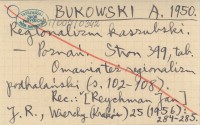 BUKOWSKI A. 1950.
Regionalizm kaszubski.
— Poznań. Stron 399, tab.
Omawia też regionalizm
podhalański (s. 102-108).
Rec.: [Reychman Jan]
J. R., Wierchy (Kraków) 25 (1956),
284-285.